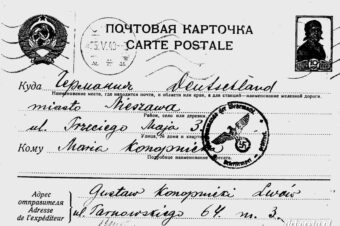 ПОЧТОВАЯ КАРТОЧКА
CARTE POSTALE
Куда Германия Deutschland
Наименование места, где находится почта, и области или края, а для станций—наименование железной дороги.
miasto Nieszawa
Район, село или деревня.
ul. Trzeciego Maja 3.
Улица, № дома и квартиры
Кому Maria Konopnicki
Подробное наименование
Адрес
отправителя
Adresse
de l'expéditeur
Gustaw Konopnicki Lwów
ul. Tarnowskiego 64. m. 3.